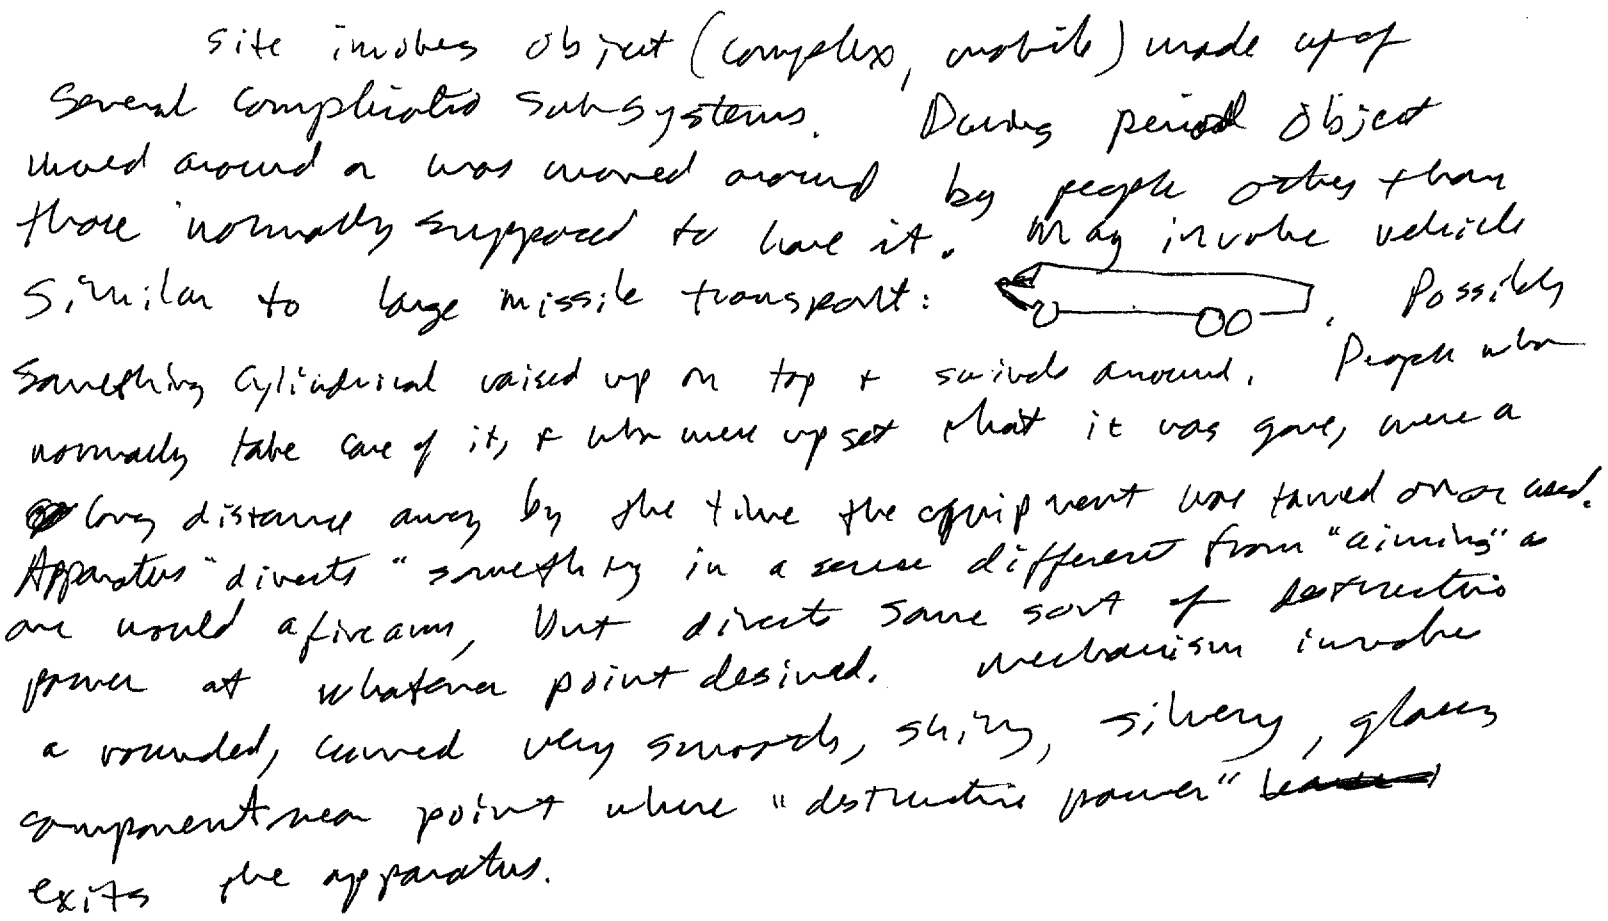 Site involves object (complex, mobile) made up of
several complicated subsystems. During period object
moved around or was moved around by people other than
those normally supposed to have it. May involve vehicle
similar to large missile transport: . Possibly
something cylindrical raised up on top + swivels around. People who
normally take care of it, + who were upset that it was gone, were a
long distance away by the time the equipment was turned on or used.
Apparatus "diverts" something in a sense different from "aiming" as
one would a firearm, but directs some sort of destructive
power at whatever point desired. Mechanism involve
a rounded, curved very smooth, shiny, silvery, glassy
component near point where "destructive power"
exits the apparatus.